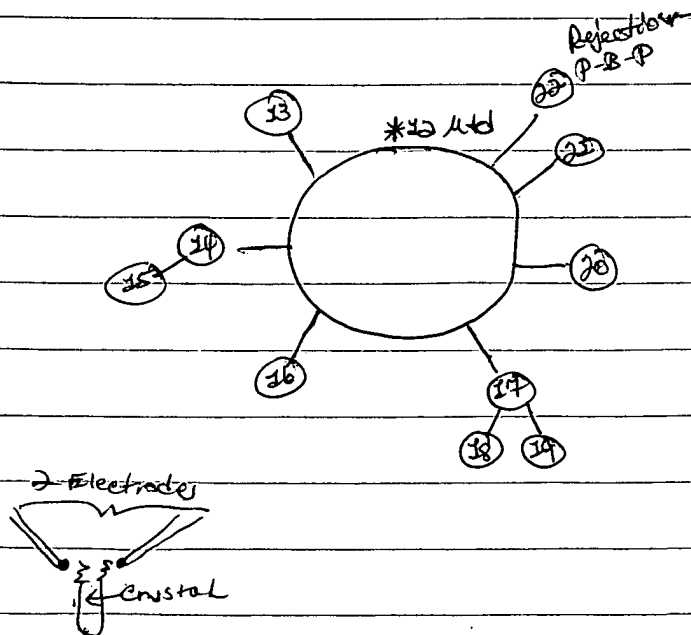 Rejection
P-B-P
22
13
*12 Mtd
21
14
15
20
16
17
18 19
2 Electrodes
Crystal